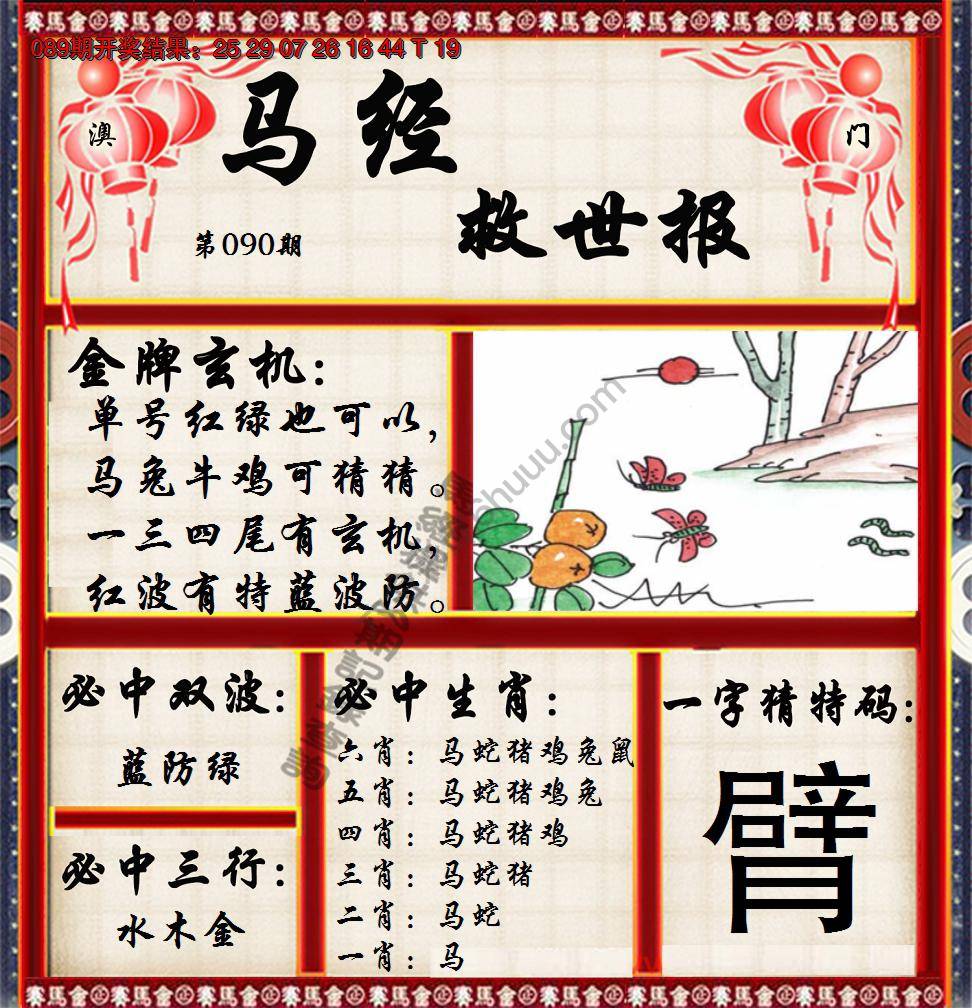 赛马会
089期开奖结果：25 29 07 26 16 44 T 19
澳
门
马经
救世报
第090期
金牌玄机：
单号红绿也可以，
马兔牛鸡可猜猜。
一三四尾有玄机，
红波有特蓝波防。
必中双波：
蓝防绿
必中三行：
水木金
必中生肖：
六肖：马蛇猪鸡兔鼠
五肖：马蛇猪鸡兔
四肖：马蛇猪鸡
三肖：马蛇猪
二肖：马蛇
一肖：马
一字猜特码：
臂